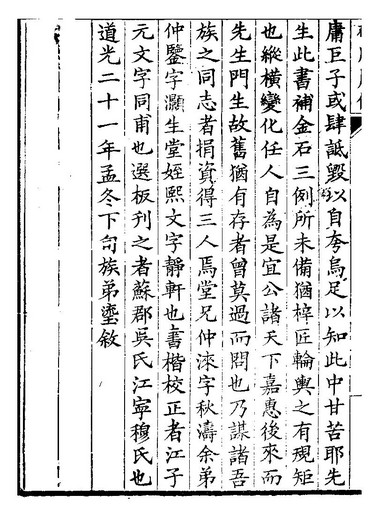 庸巨子或肆詆毀以自夸烏足以知此中甘苦耶先
生此書補金石三例所未備猶梓匠輪輿之有規矩
也縱橫變化任人自為是宜公諸天下嘉惠後來而
先生門生故舊猶有存者曾莫過而問也乃謀諸吾
族之同志者捐資得三人焉堂兄仲淶字秋濤余弟
仲鑒字灝生堂姪熙文字靜軒也書楷校正者江子
元文字同甫也選板刊之者蘇郡吳氏江寧穆氏也
道光二十一年孟冬下旬族弟壡敘